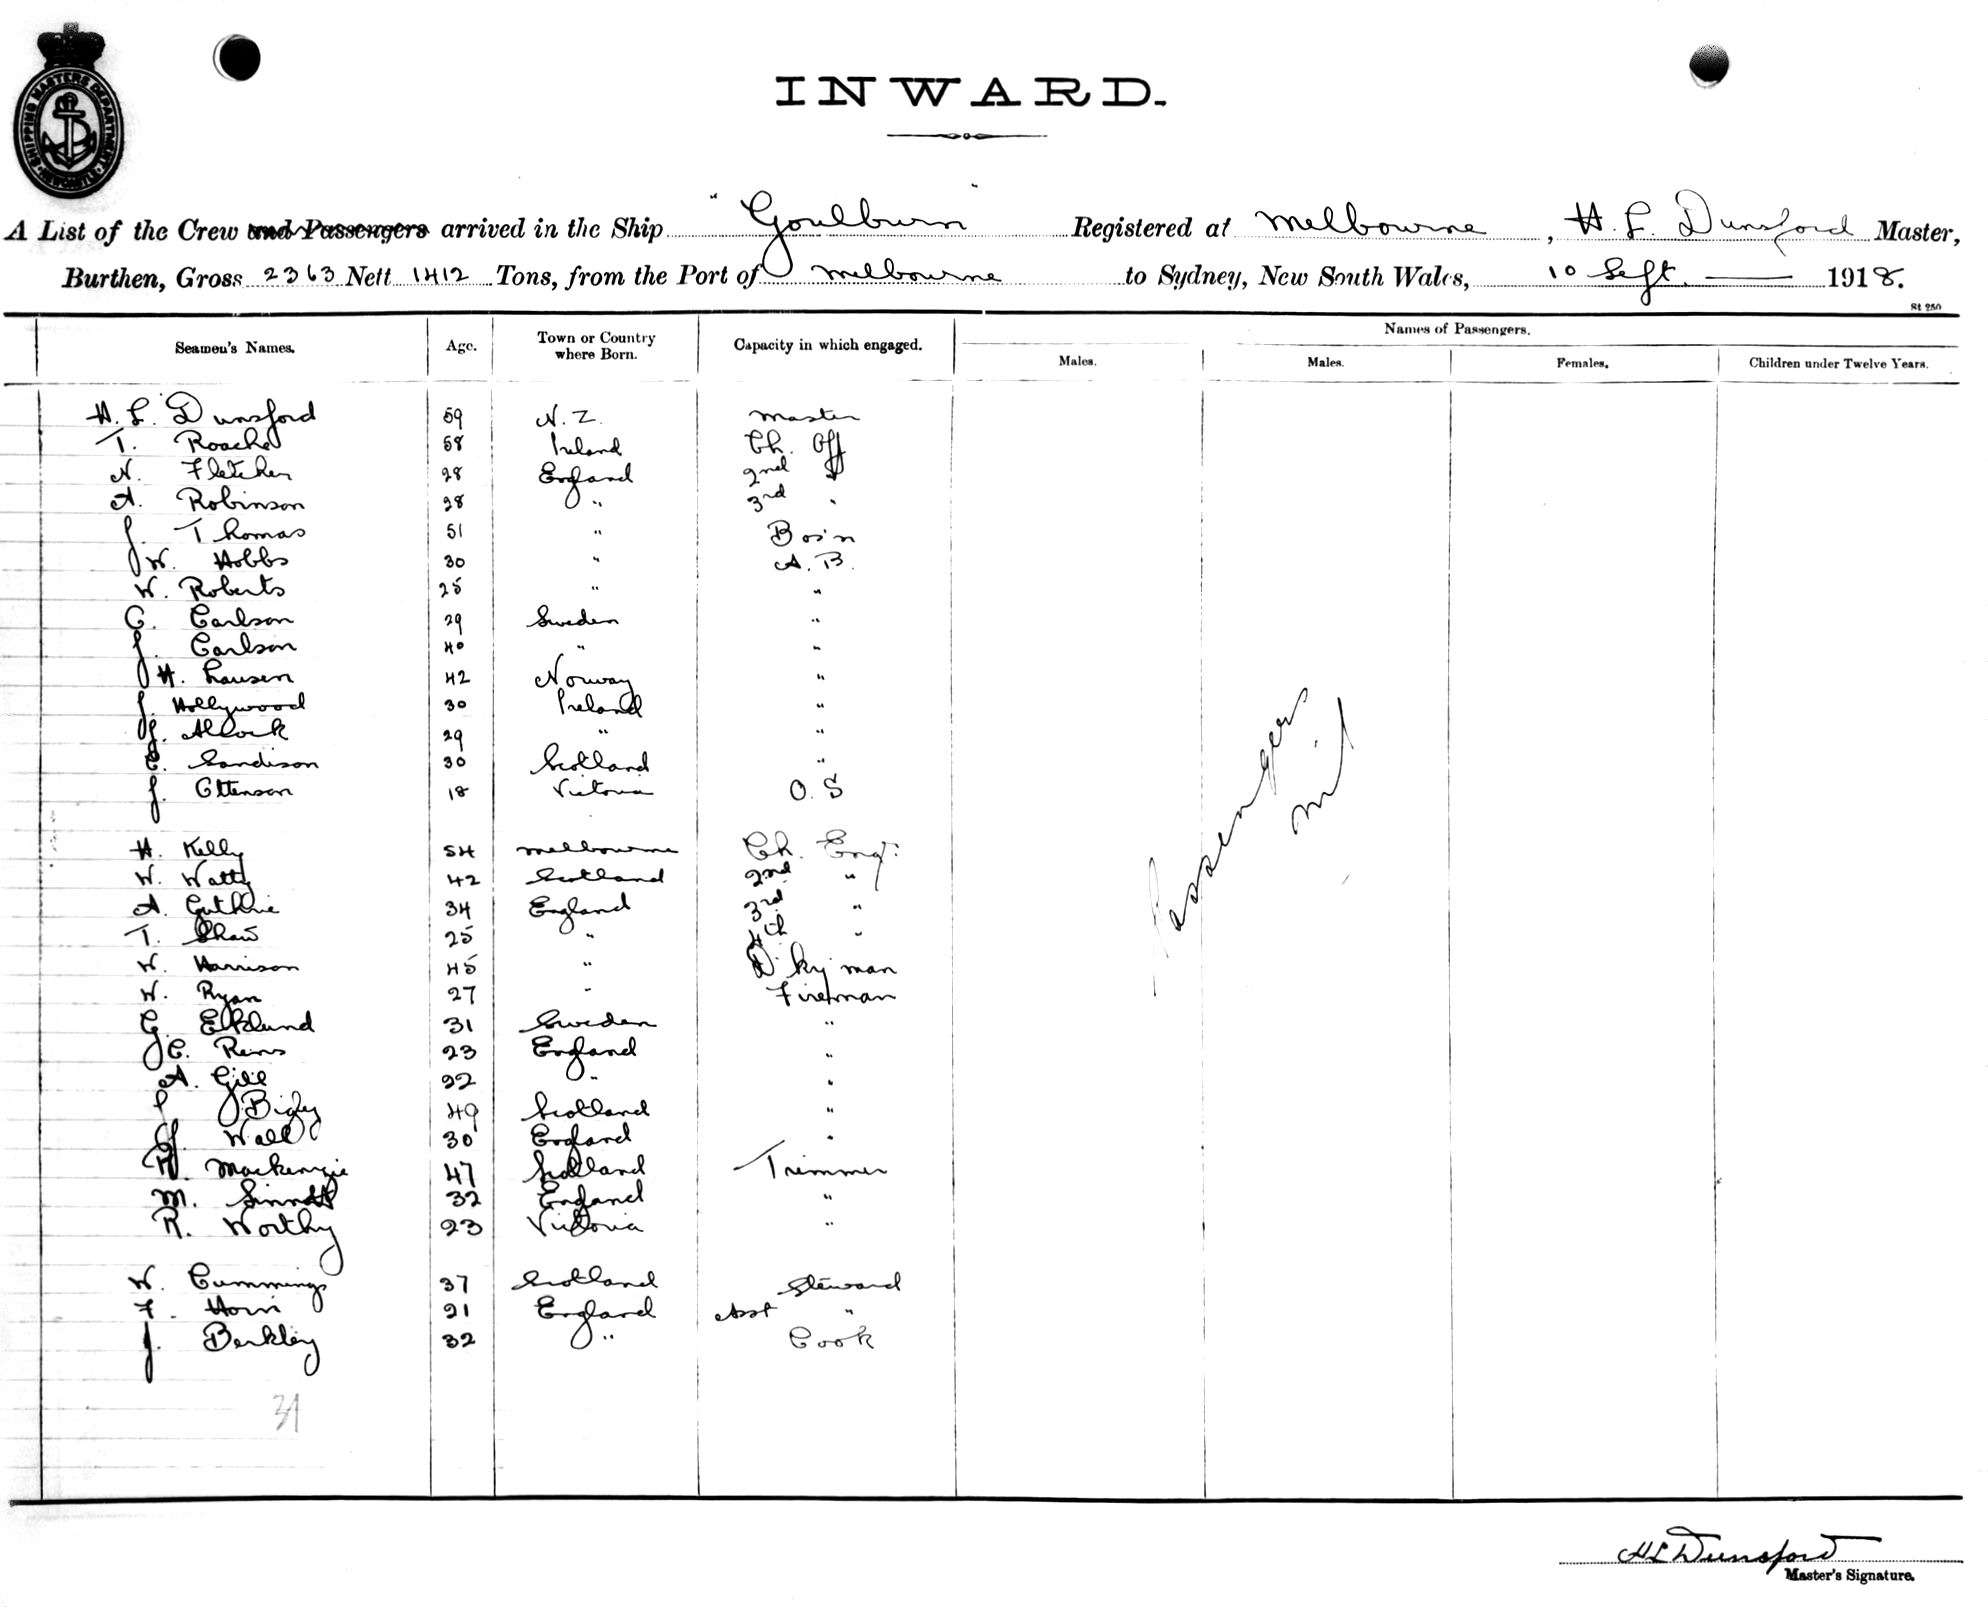 SHIPPING MASTERS DEPARTMENT NEWCASTLE
INWARD.
A List of the Crew and Passengers arrived in the Ship "Goulburn" Registered at Melbourne, H. L. Dunsford Master,
Burthen, Gross 2363 Nett 1412 Tons, from the Port of Melbourne to Sydney, New South Wales, 10 Sept. 1918.
St 250
Seamen's Names. Age. Town or Country where Born. Capacity in which engaged. Names of Passengers.
Males. Males. Females. Children under Twelve Years.
H. L. Dunsford 59 N. Z. Master
T. Roache 58 Ireland Ch. Off
N. Fletcher 28 England 2nd "
A. Robinson 28 " 3rd "
J. Thomas 51 " Bos'n
W. Hobbs 30 " A. B.
W. Roberts 25 " "
C. Carlson 29 Sweden "
J. Carlson 40 " "
H. Lausen 42 Norway "
J. Hollywood 30 Ireland "
J. 29 " "
E. Sandison 30 Scotland "
J. Ottenson 18 Victoria O. S
H. Kelly 54 Melbourne Ch. Eng.
W. Watty 42 Scotland 2nd "
A. Guthrie 34 England 3rd "
T. Shaw 25 " 4th "
W. Harrison 45 " D. ky man
W. Ryan 27 " Fireman
G. Eklund 31 Sweden "
C. 23 England "
A. Gill 22 " "
49 Scotland "
J. Wall 30 England "
Mackenzie 47 Scotland Trimmer
M. 32 England "
R. Worthy 23 Victoria "
W. Cummings 37 Scotland Steward
F. Horn 21 England Asst "
J. Berkley 32 " Cook
31
Passengers
nil
HL Dunsford
Master's Signature.